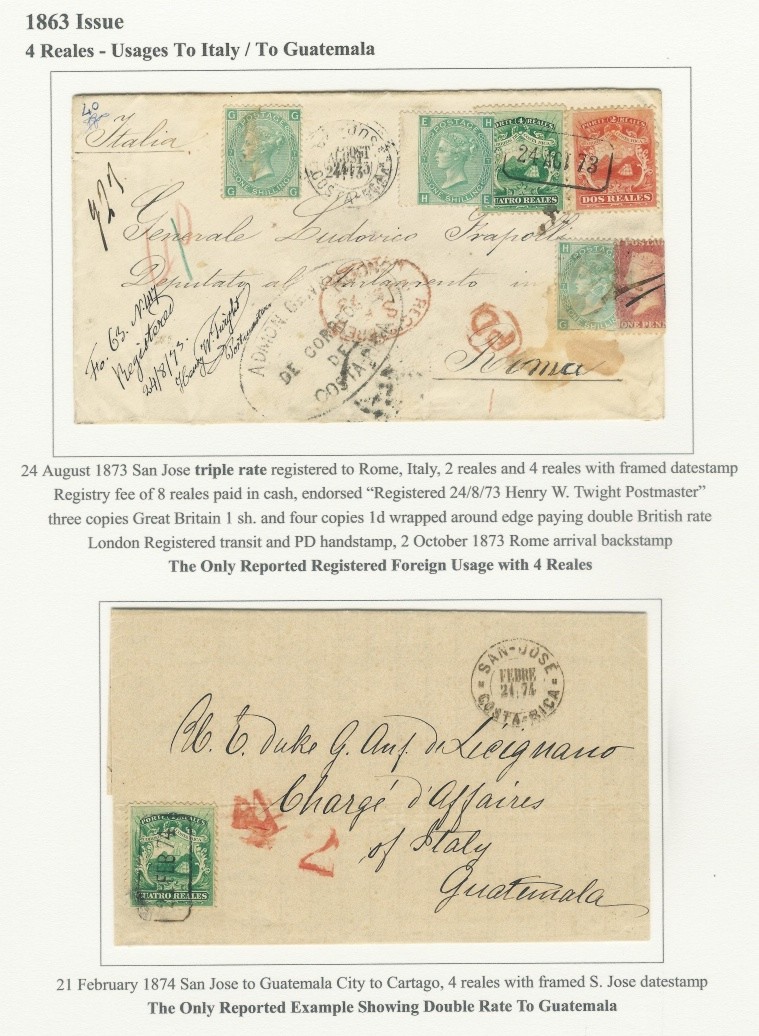 1863 Issue
4 Reales - Usages To Italy / To Guatemala
40
Italia
923
POSTAGE
ONE SHILLING
SAN-JOSE
AGOST
24 73
COSTA-RICA
POSTAGE
ONE SHILLING
PORTE 4 REALES
CUATRO REALES
PORTE 2 REALES
DOS REALES
24 AGOST 73
Generale Ludovico Frapolli
Deputato al Parlamento in
Roma
Fo. 63. N. 117
Registered
24/8/73.
Henry W Twight
Postmaster
REGISTERED
ADMON. GENERAL
DE CORREOS
DE
COSTA-RICA
PD
POSTAGE
ONE SHILLING
ONE PENNY
24 August 1873 San Jose triple rate registered to Rome, Italy, 2 reales and 4 reales with framed datestamp
Registry fee of 8 reales paid in cash, endorsed “Registered 24/8/73 Henry W. Twight Postmaster”
three copies Great Britain 1 sh. and four copies 1d wrapped around edge paying double British rate
London Registered transit and PD handstamp, 2 October 1873 Rome arrival backstamp
The Only Reported Registered Foreign Usage with 4 Reales
SAN-JOSÉ
FEBRE
21 74
COSTA-RICA
S. E. Duke G. Anf. de Licignano
Chargé d'Affaires
of Italy
Guatemala
PORTE 4 REALES
CUATRO REALES
FEB 74
2
21 February 1874 San Jose to Guatemala City to Cartago, 4 reales with framed S. Jose datestamp
The Only Reported Example Showing Double Rate To Guatemala